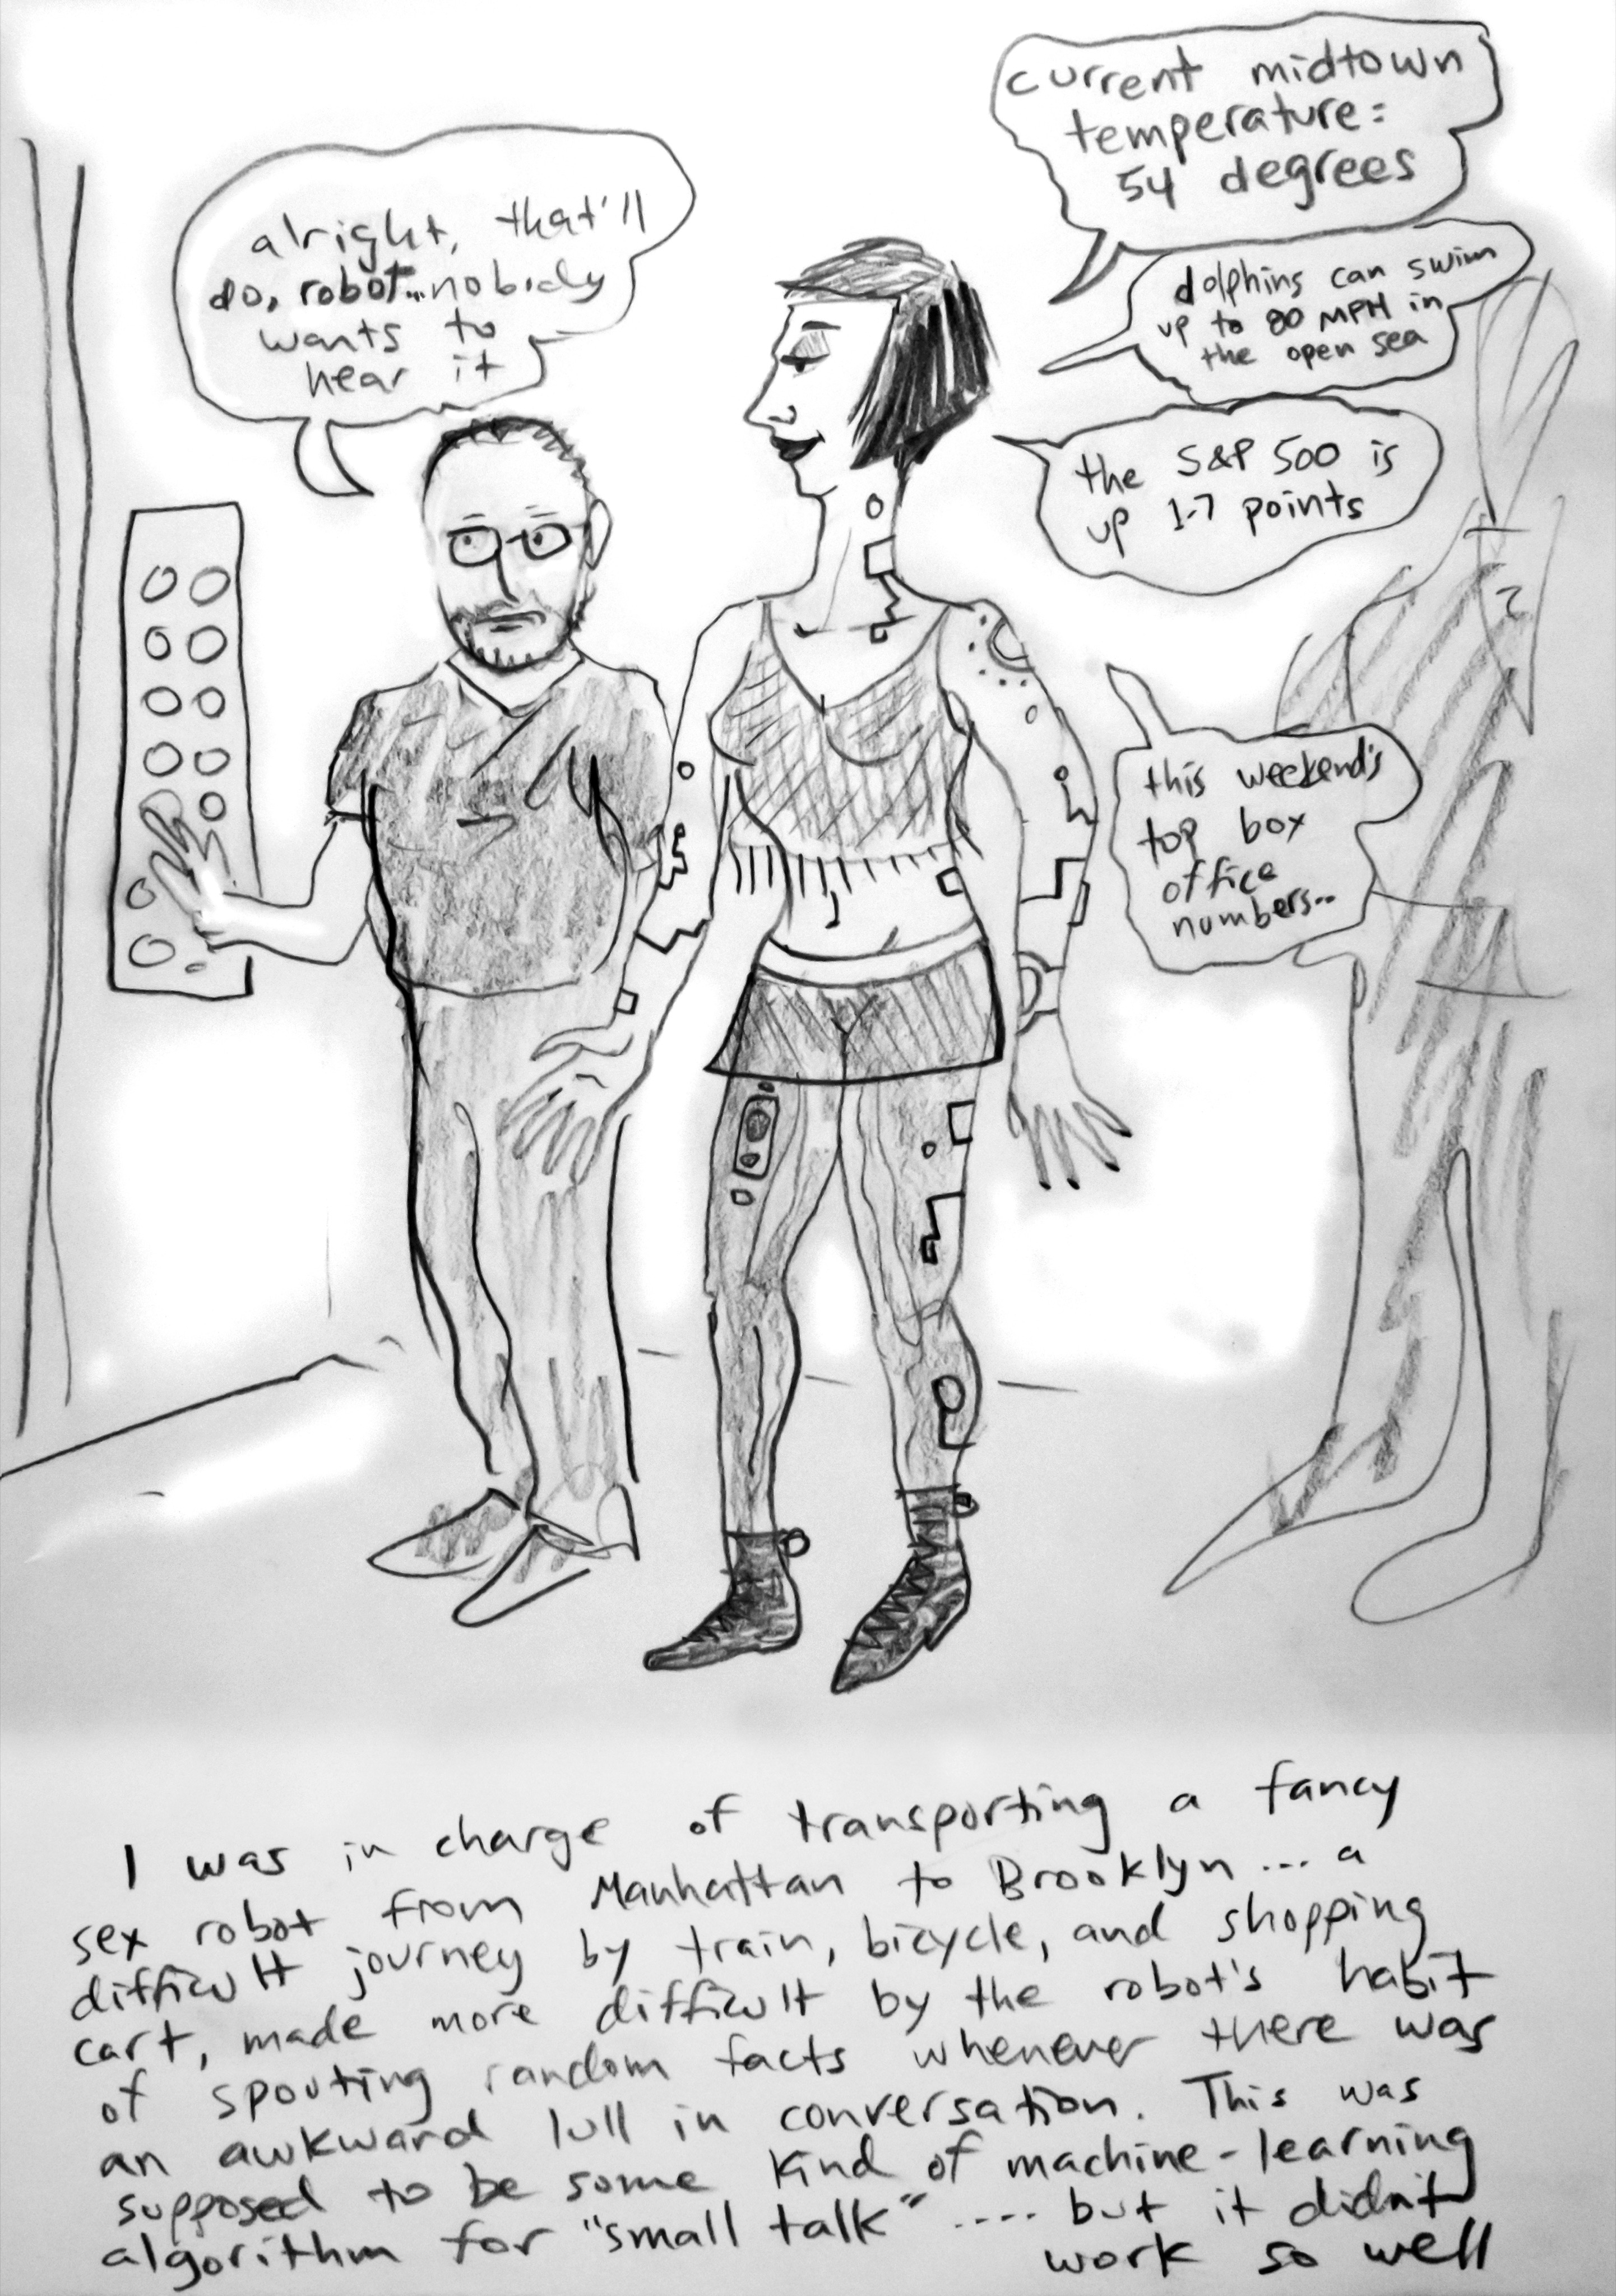 alright, that'll
do, robot...nobody
wants to
hear it
current midtown
temperature:
54 degrees
dolphins can swim
up to 80 MPH in
the open sea
the S&P 500 is
up 1.7 points
this weekend's
top box
office
numbers..
I was in charge of transporting a fancy
sex robot from Manhattan to Brooklyn... a
difficult journey by train, bicycle, and shopping
cart, made more difficult by the robot's habit
of spouting random facts whenever there was
an awkward lull in conversation. This was
supposed to be some kind of machine-learning
algorithm for "small talk" .... but it didn't
work so well